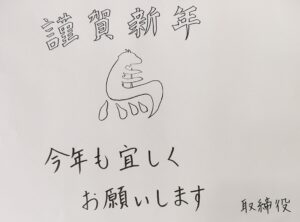 謹賀新年
馬
今年も宜しく
お願いします
取締役